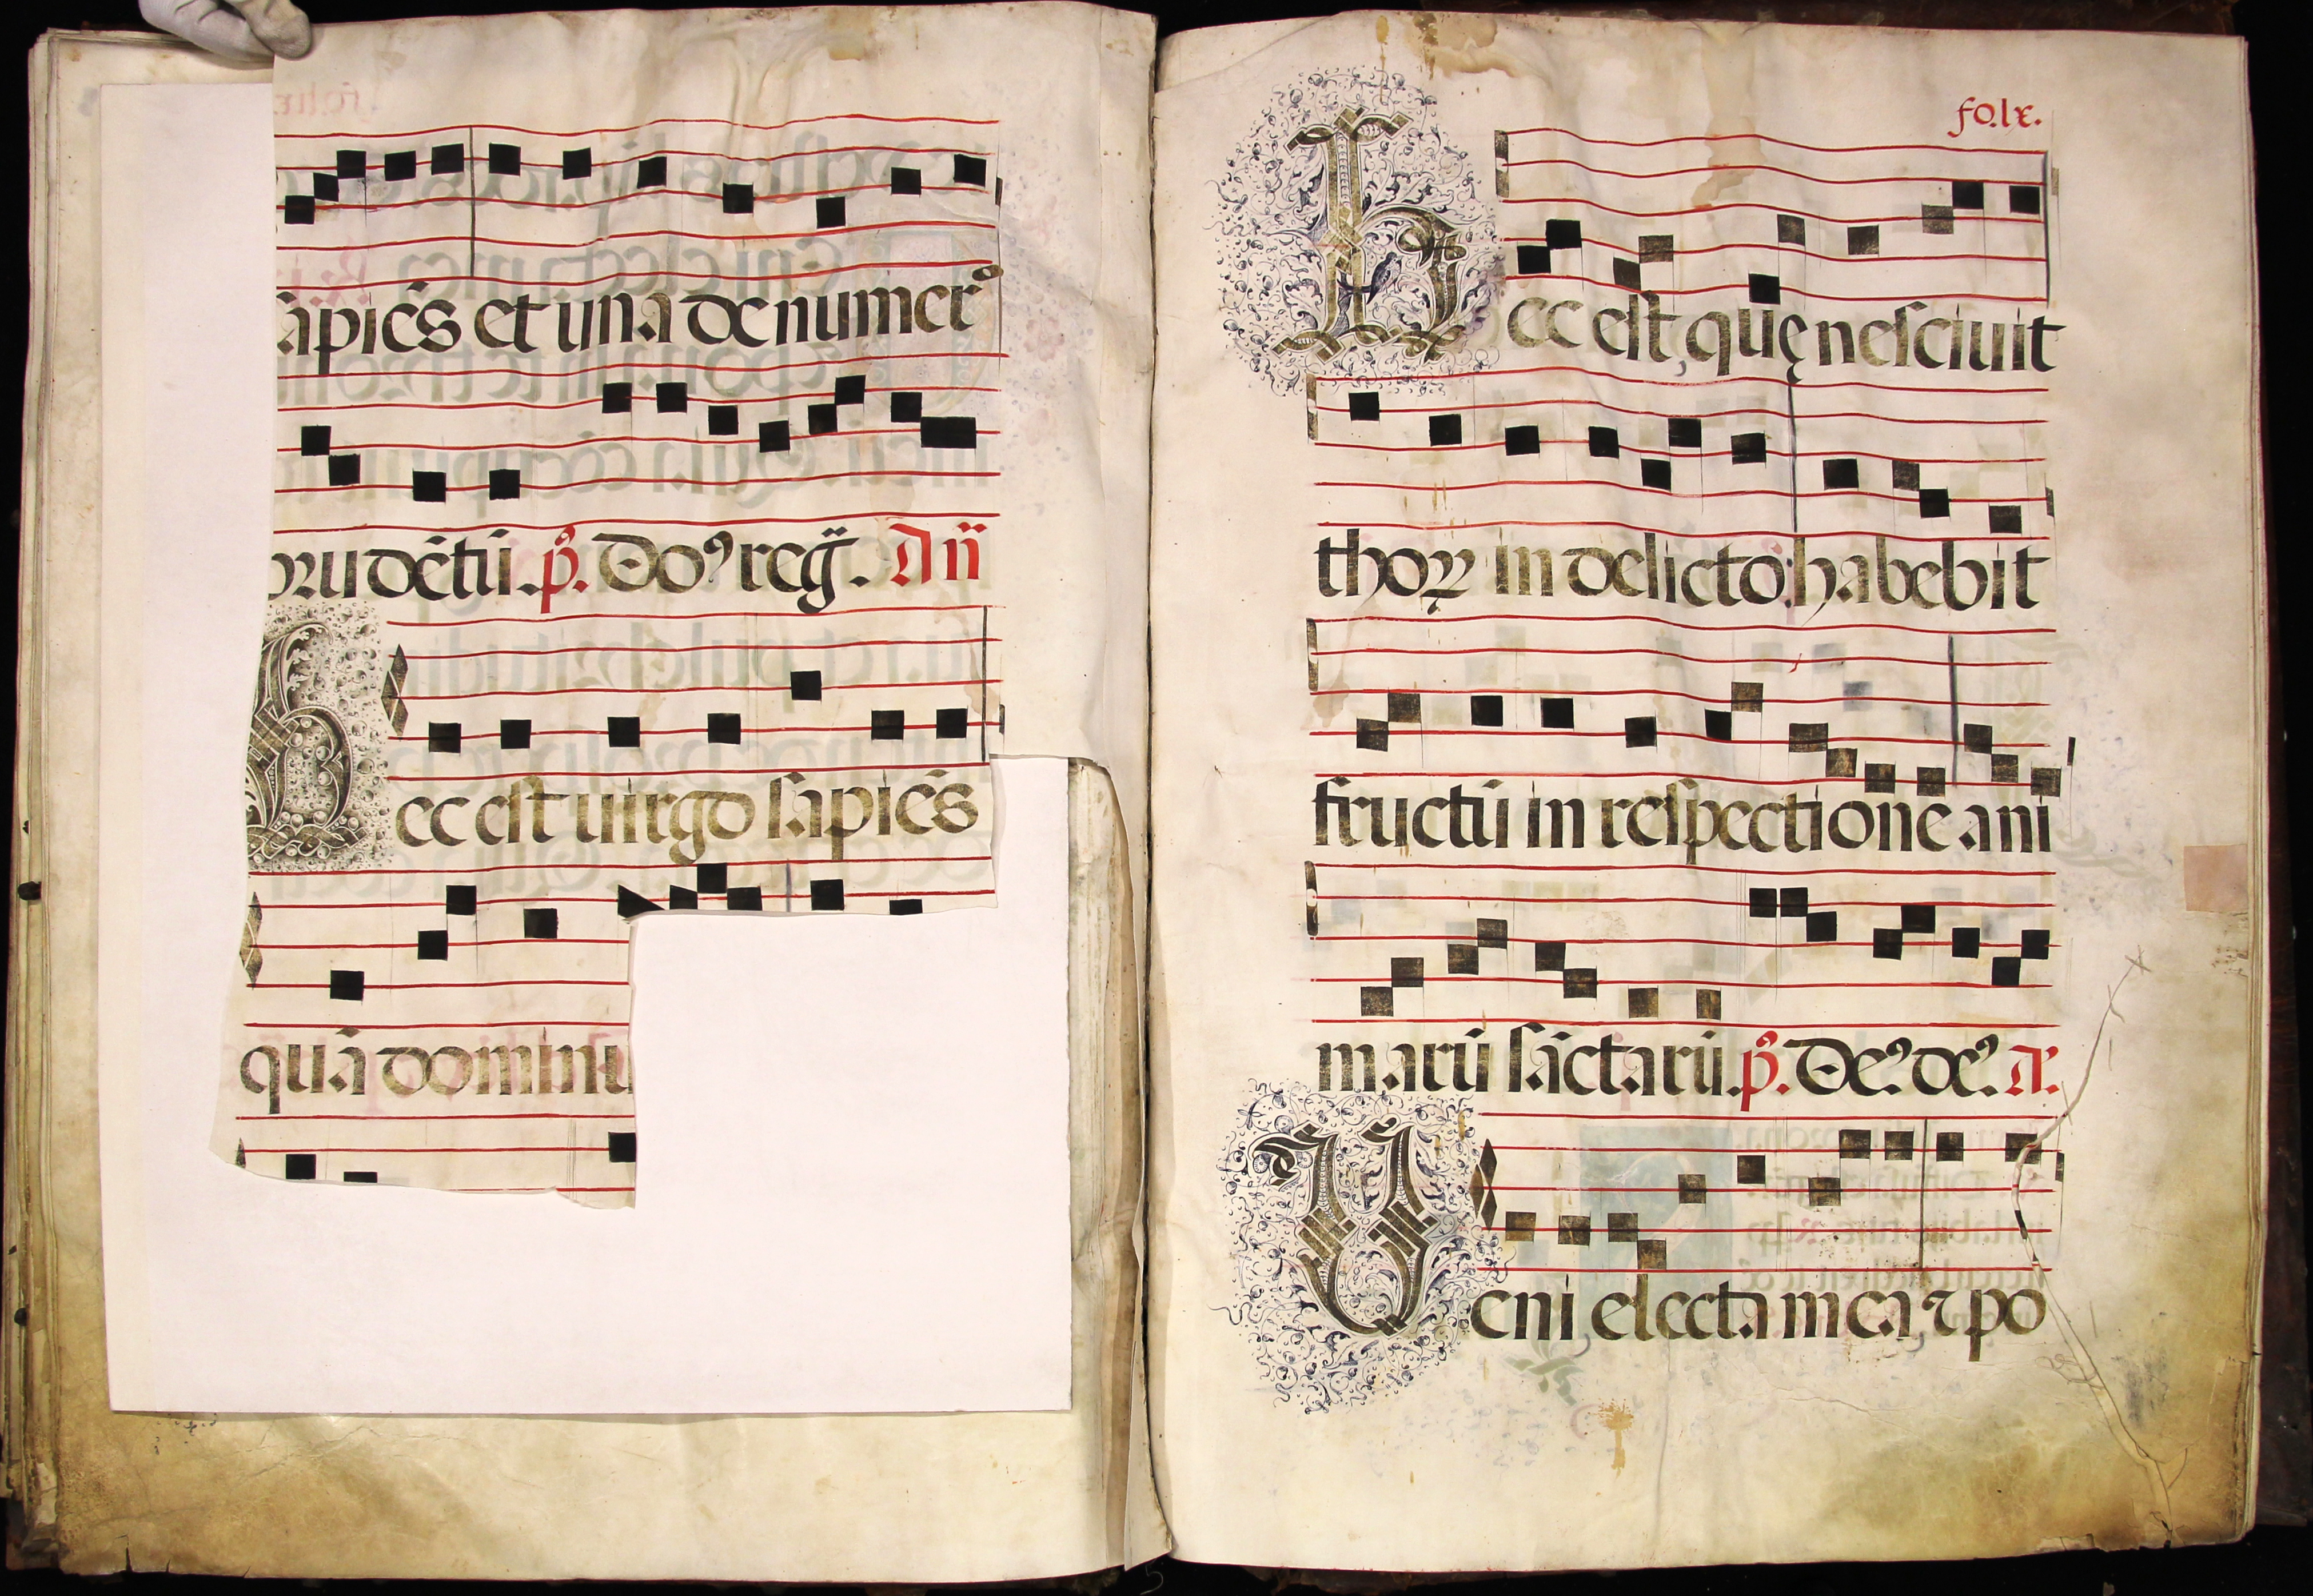 sapiēs et una de numero
prudētū. p̄s. Do⁹ reḡ. Añ
Hec est uirgo sapiēs
quā dominu
fo. lx.
Hec est, quę nesciuit
thoꝝ in delicto: habebit
fructū in respectione ani
marū sāctarū. p̄s. De⁹ de⁹. A.
Veni electa mea ⁊ po